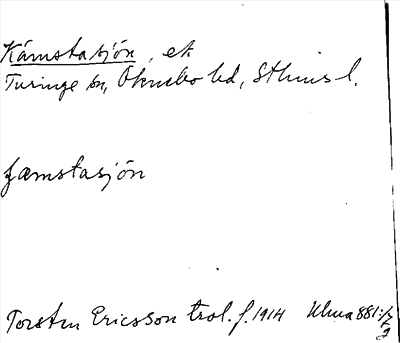 Kämstasjön, ek
Turinge sn, Öknebo hd, Sthms l.
ɟæmstasjön
Torsten Ericsson trol. f. 1914 Uma 881: